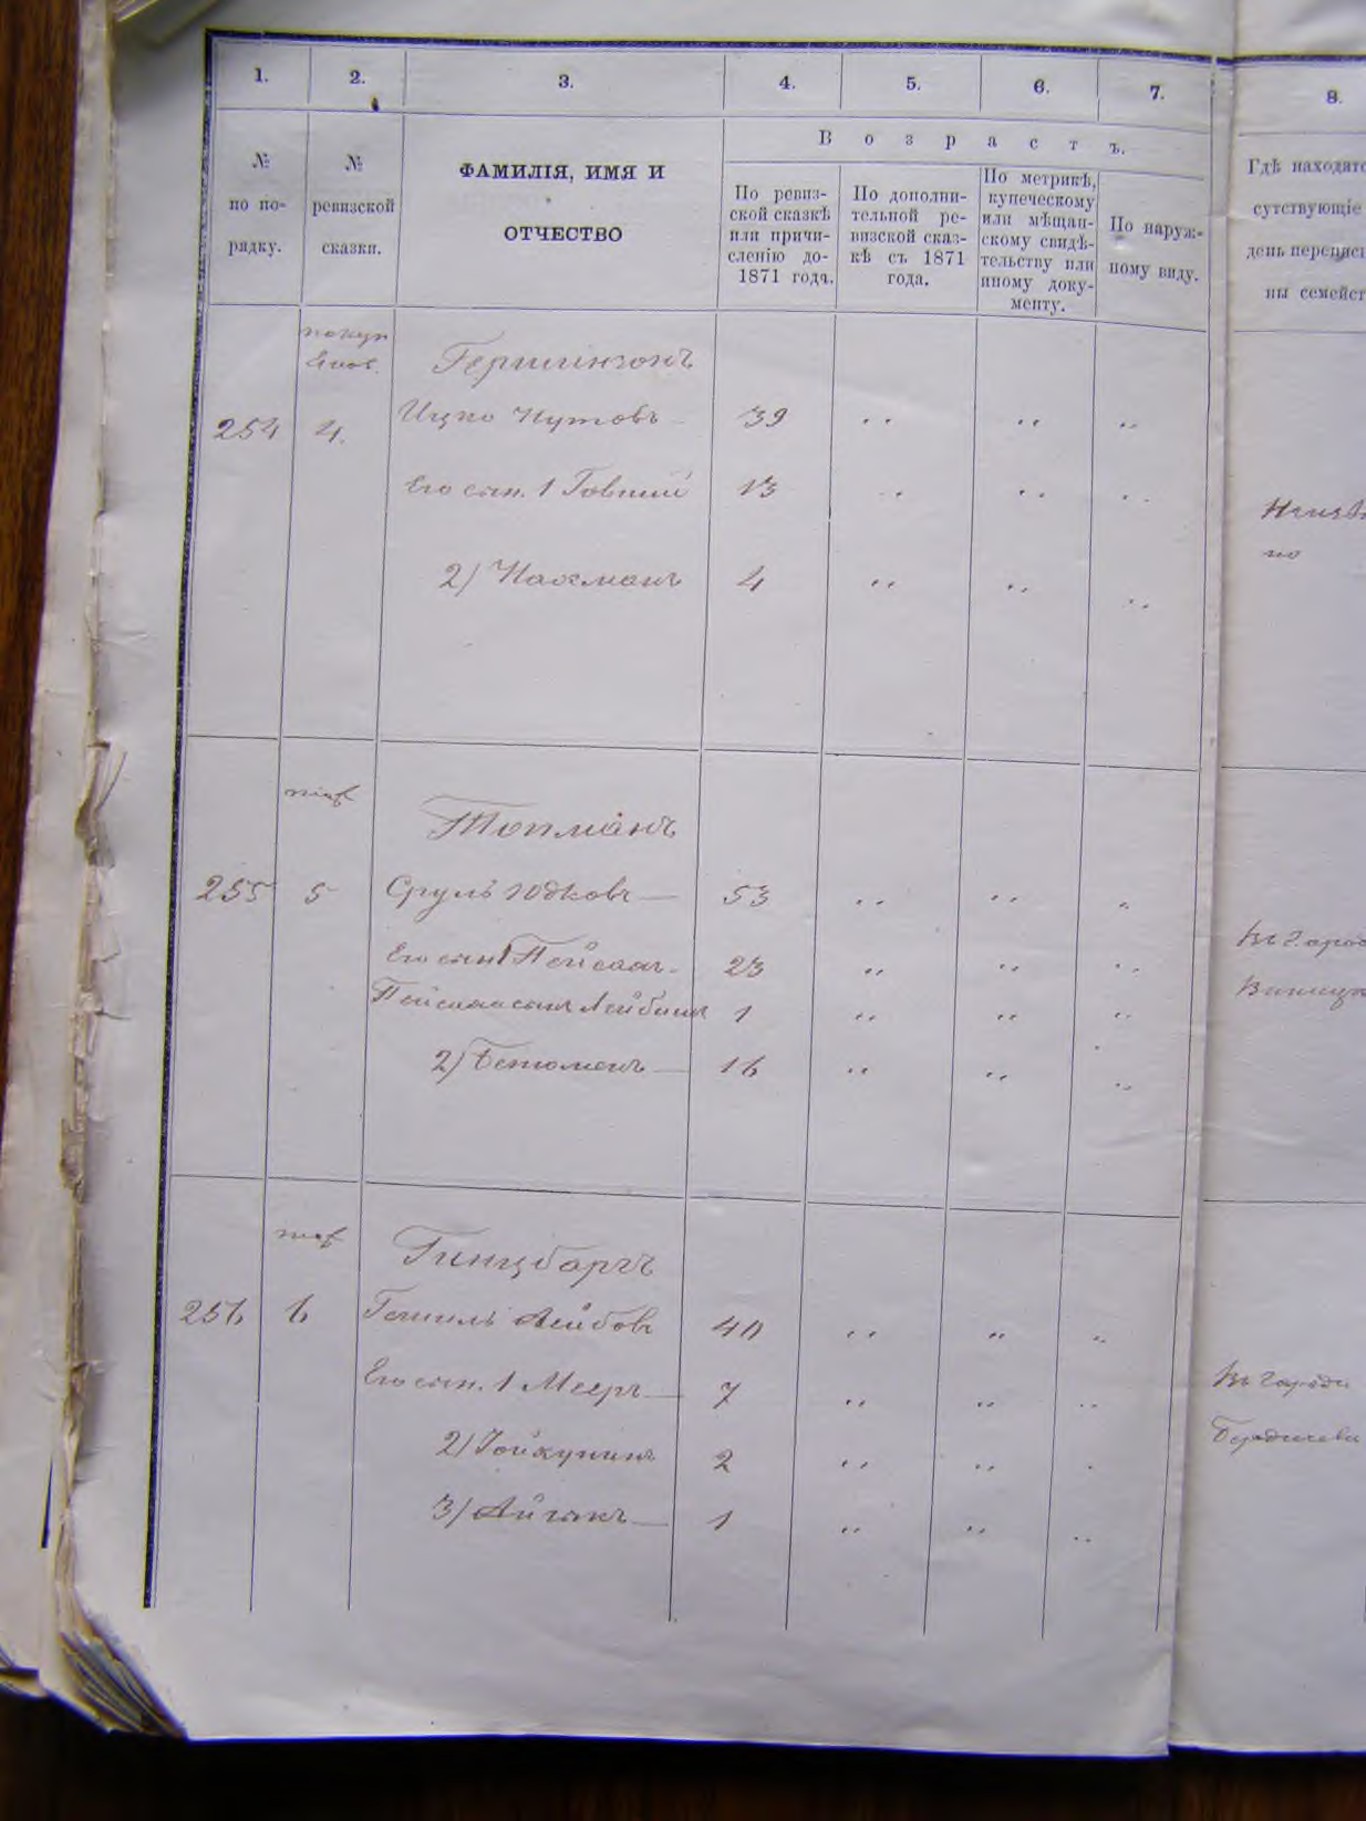 1. 2. 3. 4. 5. 6. 7. 8.
№ по по-рядку.
№ ревизской сказки.
ФАМИЛІЯ, ИМЯ И
ОТЧЕСТВО
Возрастъ.
По ревиз-
ской сказкѣ
или причи-
сленію до-
1871 года.
По дополни-
тельной ре-
визской сказ-
кѣ съ 1871
года.
По метрикѣ,
купеческому
или мѣщан-
скому свидѣ-
тельству или
иному доку-
менту.
По наруж-
ному виду.
Гдѣ находятс
сутствующіе
день переписи
ны семейст
Гершинзонъ
254 4. Ицко Нутовъ 39 " " "
Его сын. 1 Говший 13 " " "
2) Нахманъ 4 " " "
Топманъ
255 5 Сруль Юдковъ 53 " " "
Его сын 1 Пейсахъ 23 " " "
Пейсаха сынъ Лейбишъ 1 " " "
2) 16 " " "
Въ Город
Винниц
Гинцбаргъ
256 6 Гешиль Лейбовъ 40 " " "
Его сын. 1 Мееръ 7 " " "
2) 2 " " "
3) Айзикъ 1 " " "
Въ городе
Бердичеве